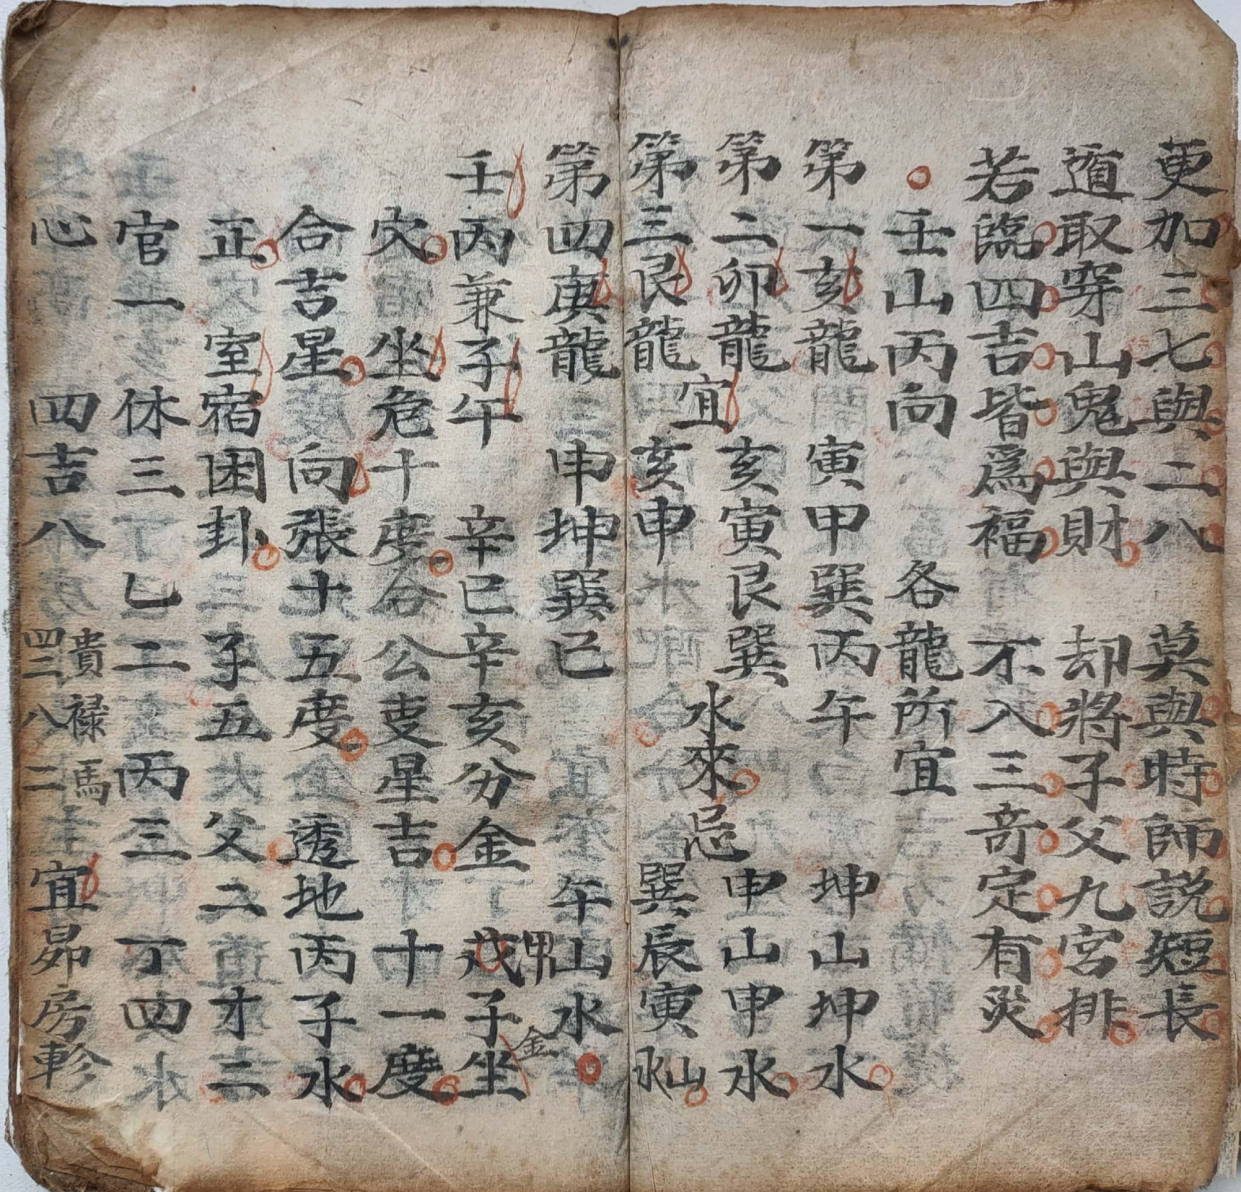 更加三七與二八 莫與時師說短長
遁取穿山鬼與財 却將子父九宮排
若臨四吉皆為福 不入三奇定有災
壬山丙向 各龍所宜
第一亥龍 寅甲巽丙午 坤山坤水
第二卯龍 亥寅艮巽 申山申水
宜 水來忌
第三艮龍 亥申 巽辰寅山水
第四庚龍 申坤巽巳 午山水
壬丙兼子午 辛巳辛亥分金 甲子金坐
穴 坐危十度合公吏星吉 十一度
合吉星 向張十五度 透地丙子水
正 室宿困卦 子五父二才三
官一 休三丁乙二丙三丁四
心 四吉八 貴四三祿八馬二 宜昴房軫